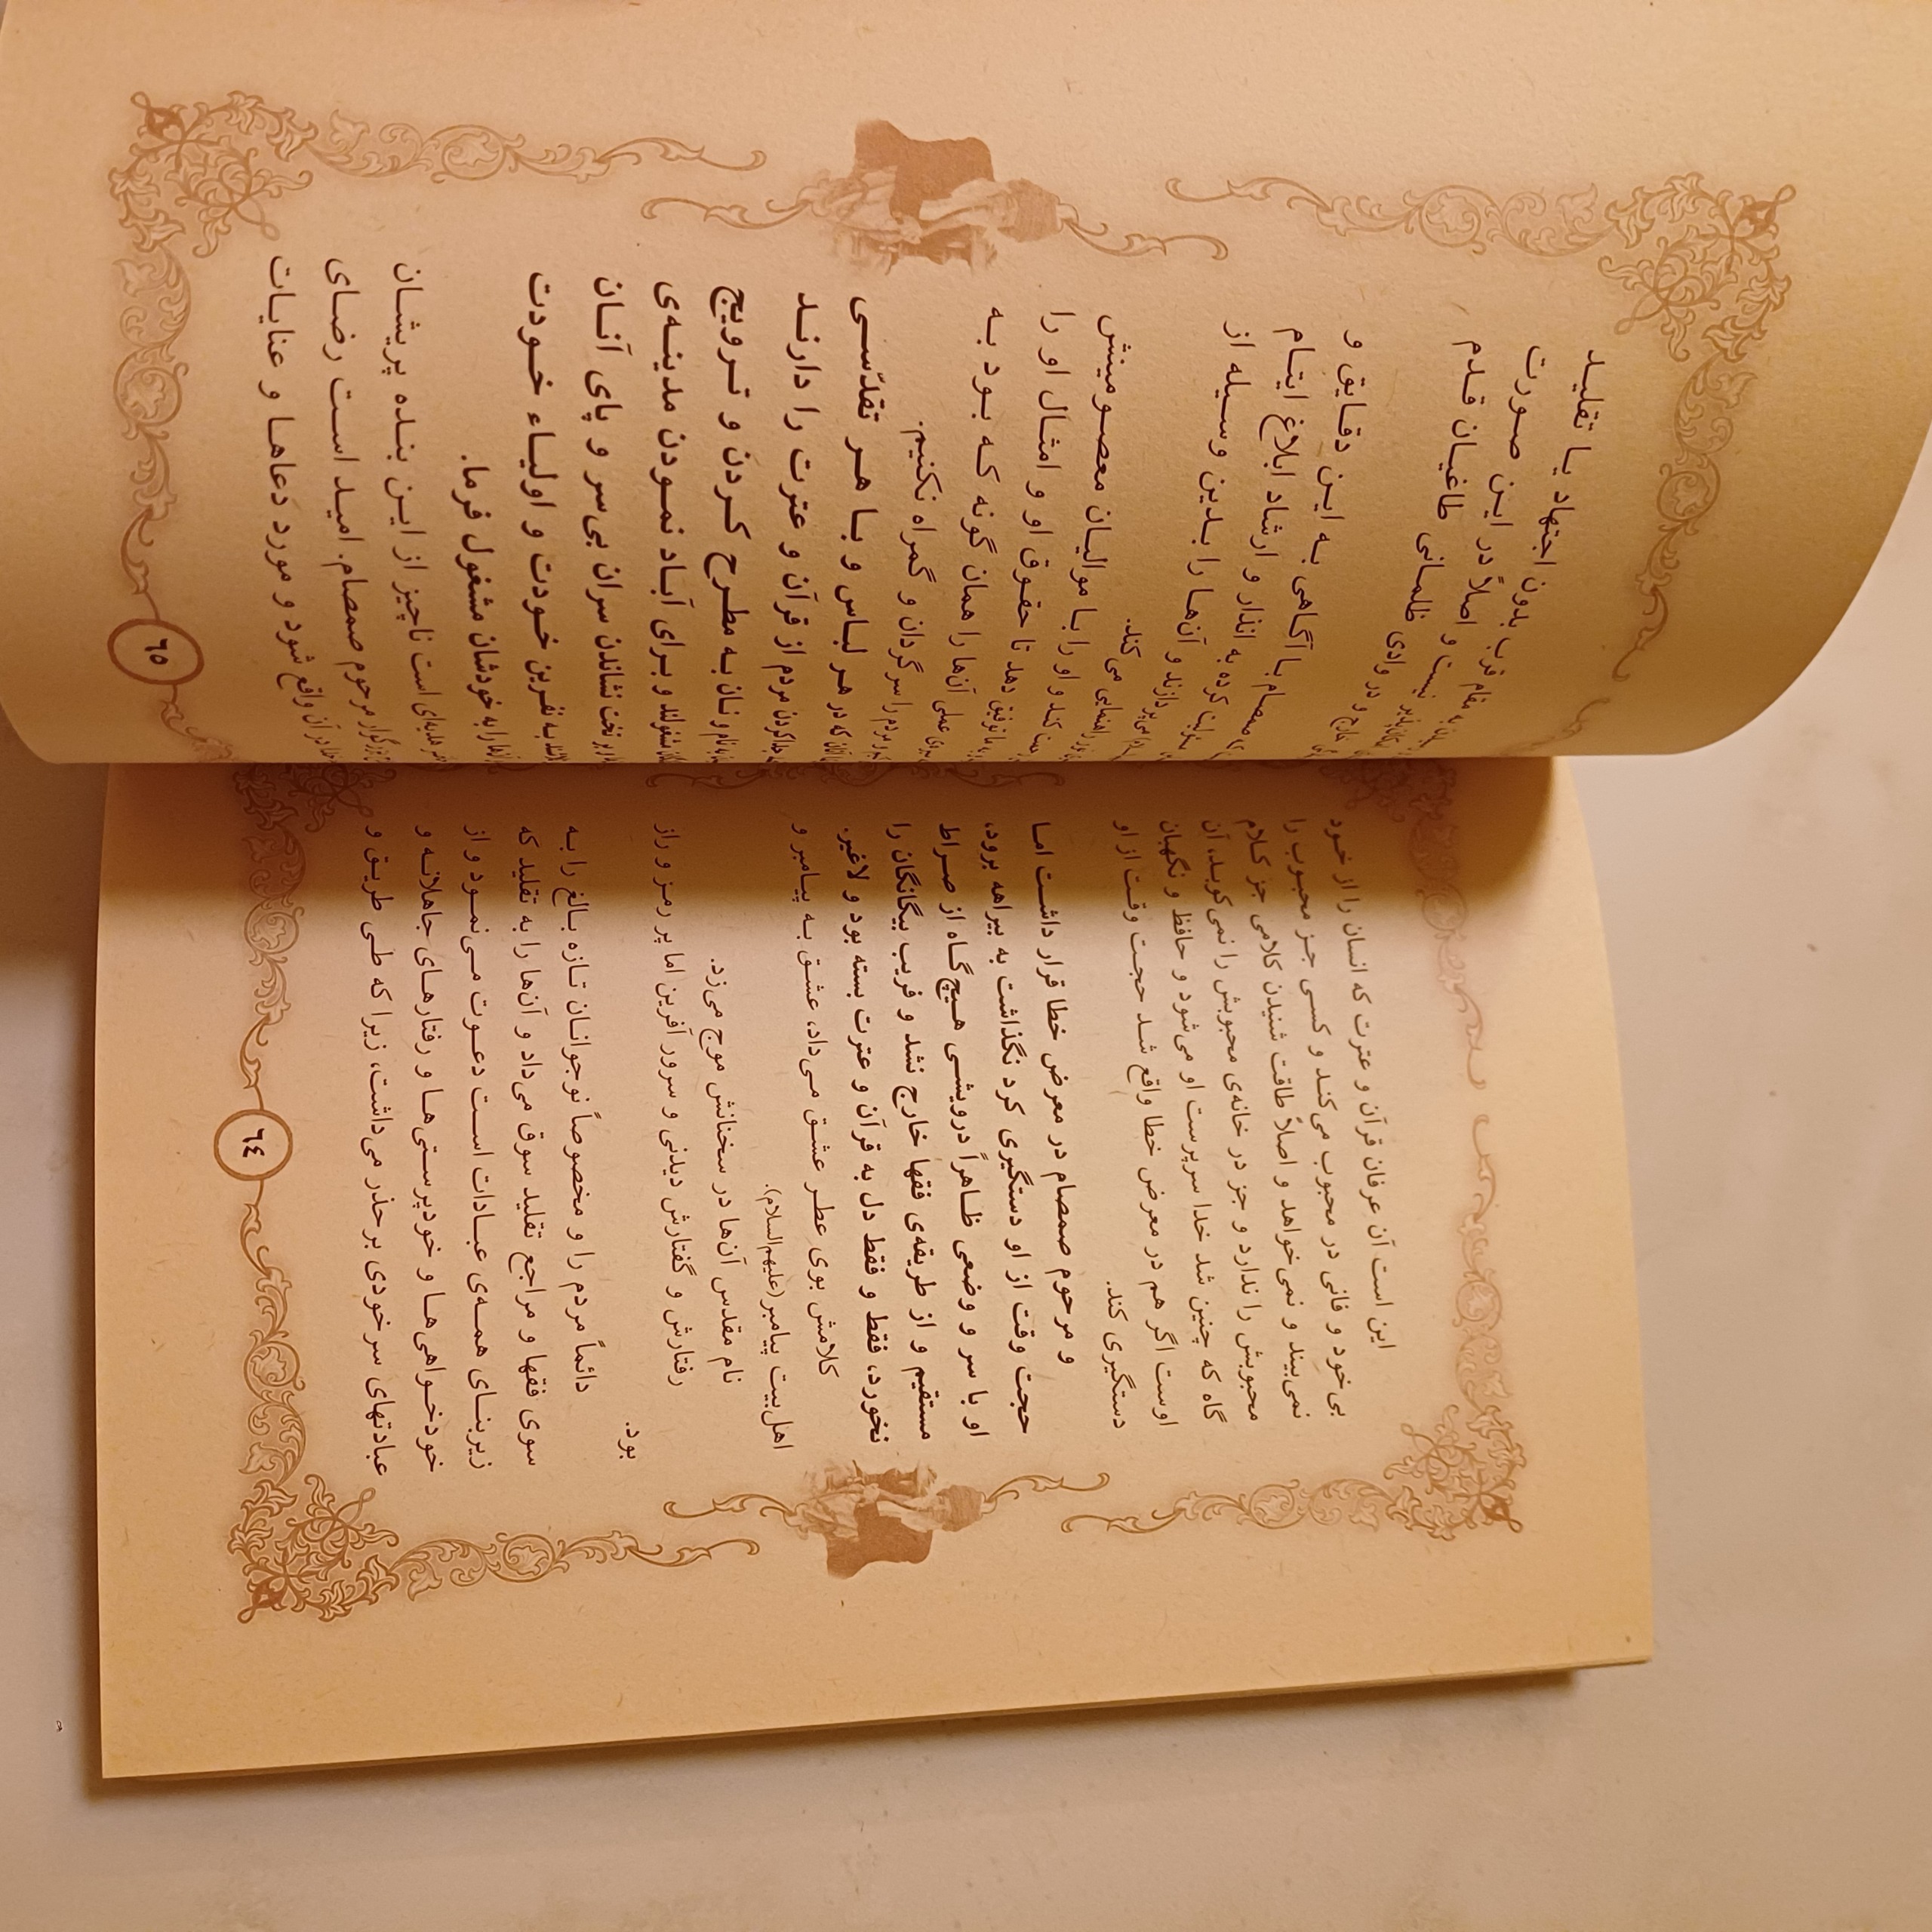 این است آن عرفان قرآن و عترت که انسان را از خود
بی‌خود و فانی در محبوب می‌کند و کسی جز محبوب را
نمی‌بیند و نمی‌خواهد و اصلاً طاقت شنیدن کلامی جز کلام
محبوبش را ندارد و جز در خانه‌ی محبوبش را نمی‌کوبد، آن
گاه که چنین شد خدا سرپرست او می‌شود و حافظ و نگهبان
اوست اگر هم در معرض خطا واقع شد حجت وقت از او
دستگیری کند.
و مرحوم صمصام در معرض خطا قرار داشت اما
حجت وقت از او دستگیری کرد نگذاشت به بیراهه برود،
او با سر و وضعی ظاهراً درویشی هیچ‌گاه از صراط
مستقیم و از طریقه‌ی فقها خارج نشد و فریب بیگانگان را
نخورد، فقط و فقط دل به قرآن و عترت بسته بود و لاغیر.
کلامش بوی عطر عشق می‌داد، عشق به پیامبر و
اهل‌بیت پیامبر (علیهم‌السلام).
نام مقدس آن‌ها در سخنانش موج می‌زد.
رفتارش و گفتارش دیدنی و سرور آفرین اما پر رمز و راز
بود.
دائماً مردم را و مخصوصاً نوجوانان تازه بالغ را به
سوی فقها و مراجع تقلید سوق می‌داد و آن‌ها را به تقلید که
زیربنای همه‌ی عبادات است دعوت می‌نمود و از
خودخواهی‌ها و خودپرستی‌ها و رفتارهای جاهلانه و
عبادتهای سرخودی بر حذر می‌داشت، زیرا که طی طریق و
٦٤
مقام قرب بدون اجتهاد یا تقلید
نیست و اصلاً در این صورت
در وادی ظلمانی طاغیان قدم
صمصام با آگاهی به این دقایق و
کرده به انذار و ارشاد ابلاغ ایتام
و آن‌ها را بدین وسیله از
راهنمایی می‌کند.
و او را با موالیان معصومینش
توفیق دهد تا حقوق او و امثال او را
عملی آن‌ها را همان گونه که بود به
مردم را سرگردان و گمراه نکنیم.
که در هر لباس و با هر تقدّسی
جدا کردن مردم از قرآن و عترت را دارند
نام و نان به مطرح کردن و ترویج
مشغولند و برای آباد نمودن مدینه‌ی
بر تخت نشاندن سران بی‌سر و پای آنان
به نفرین خودت و اولیاء خودت
را به خودشان مشغول فرما.
هدیه‌ای است ناچیز از این بنده پریشان
بزرگوار مرحوم صمصام. امید است رضای
در آن واقع شود و مورد دعاها و عنایات
٦٥